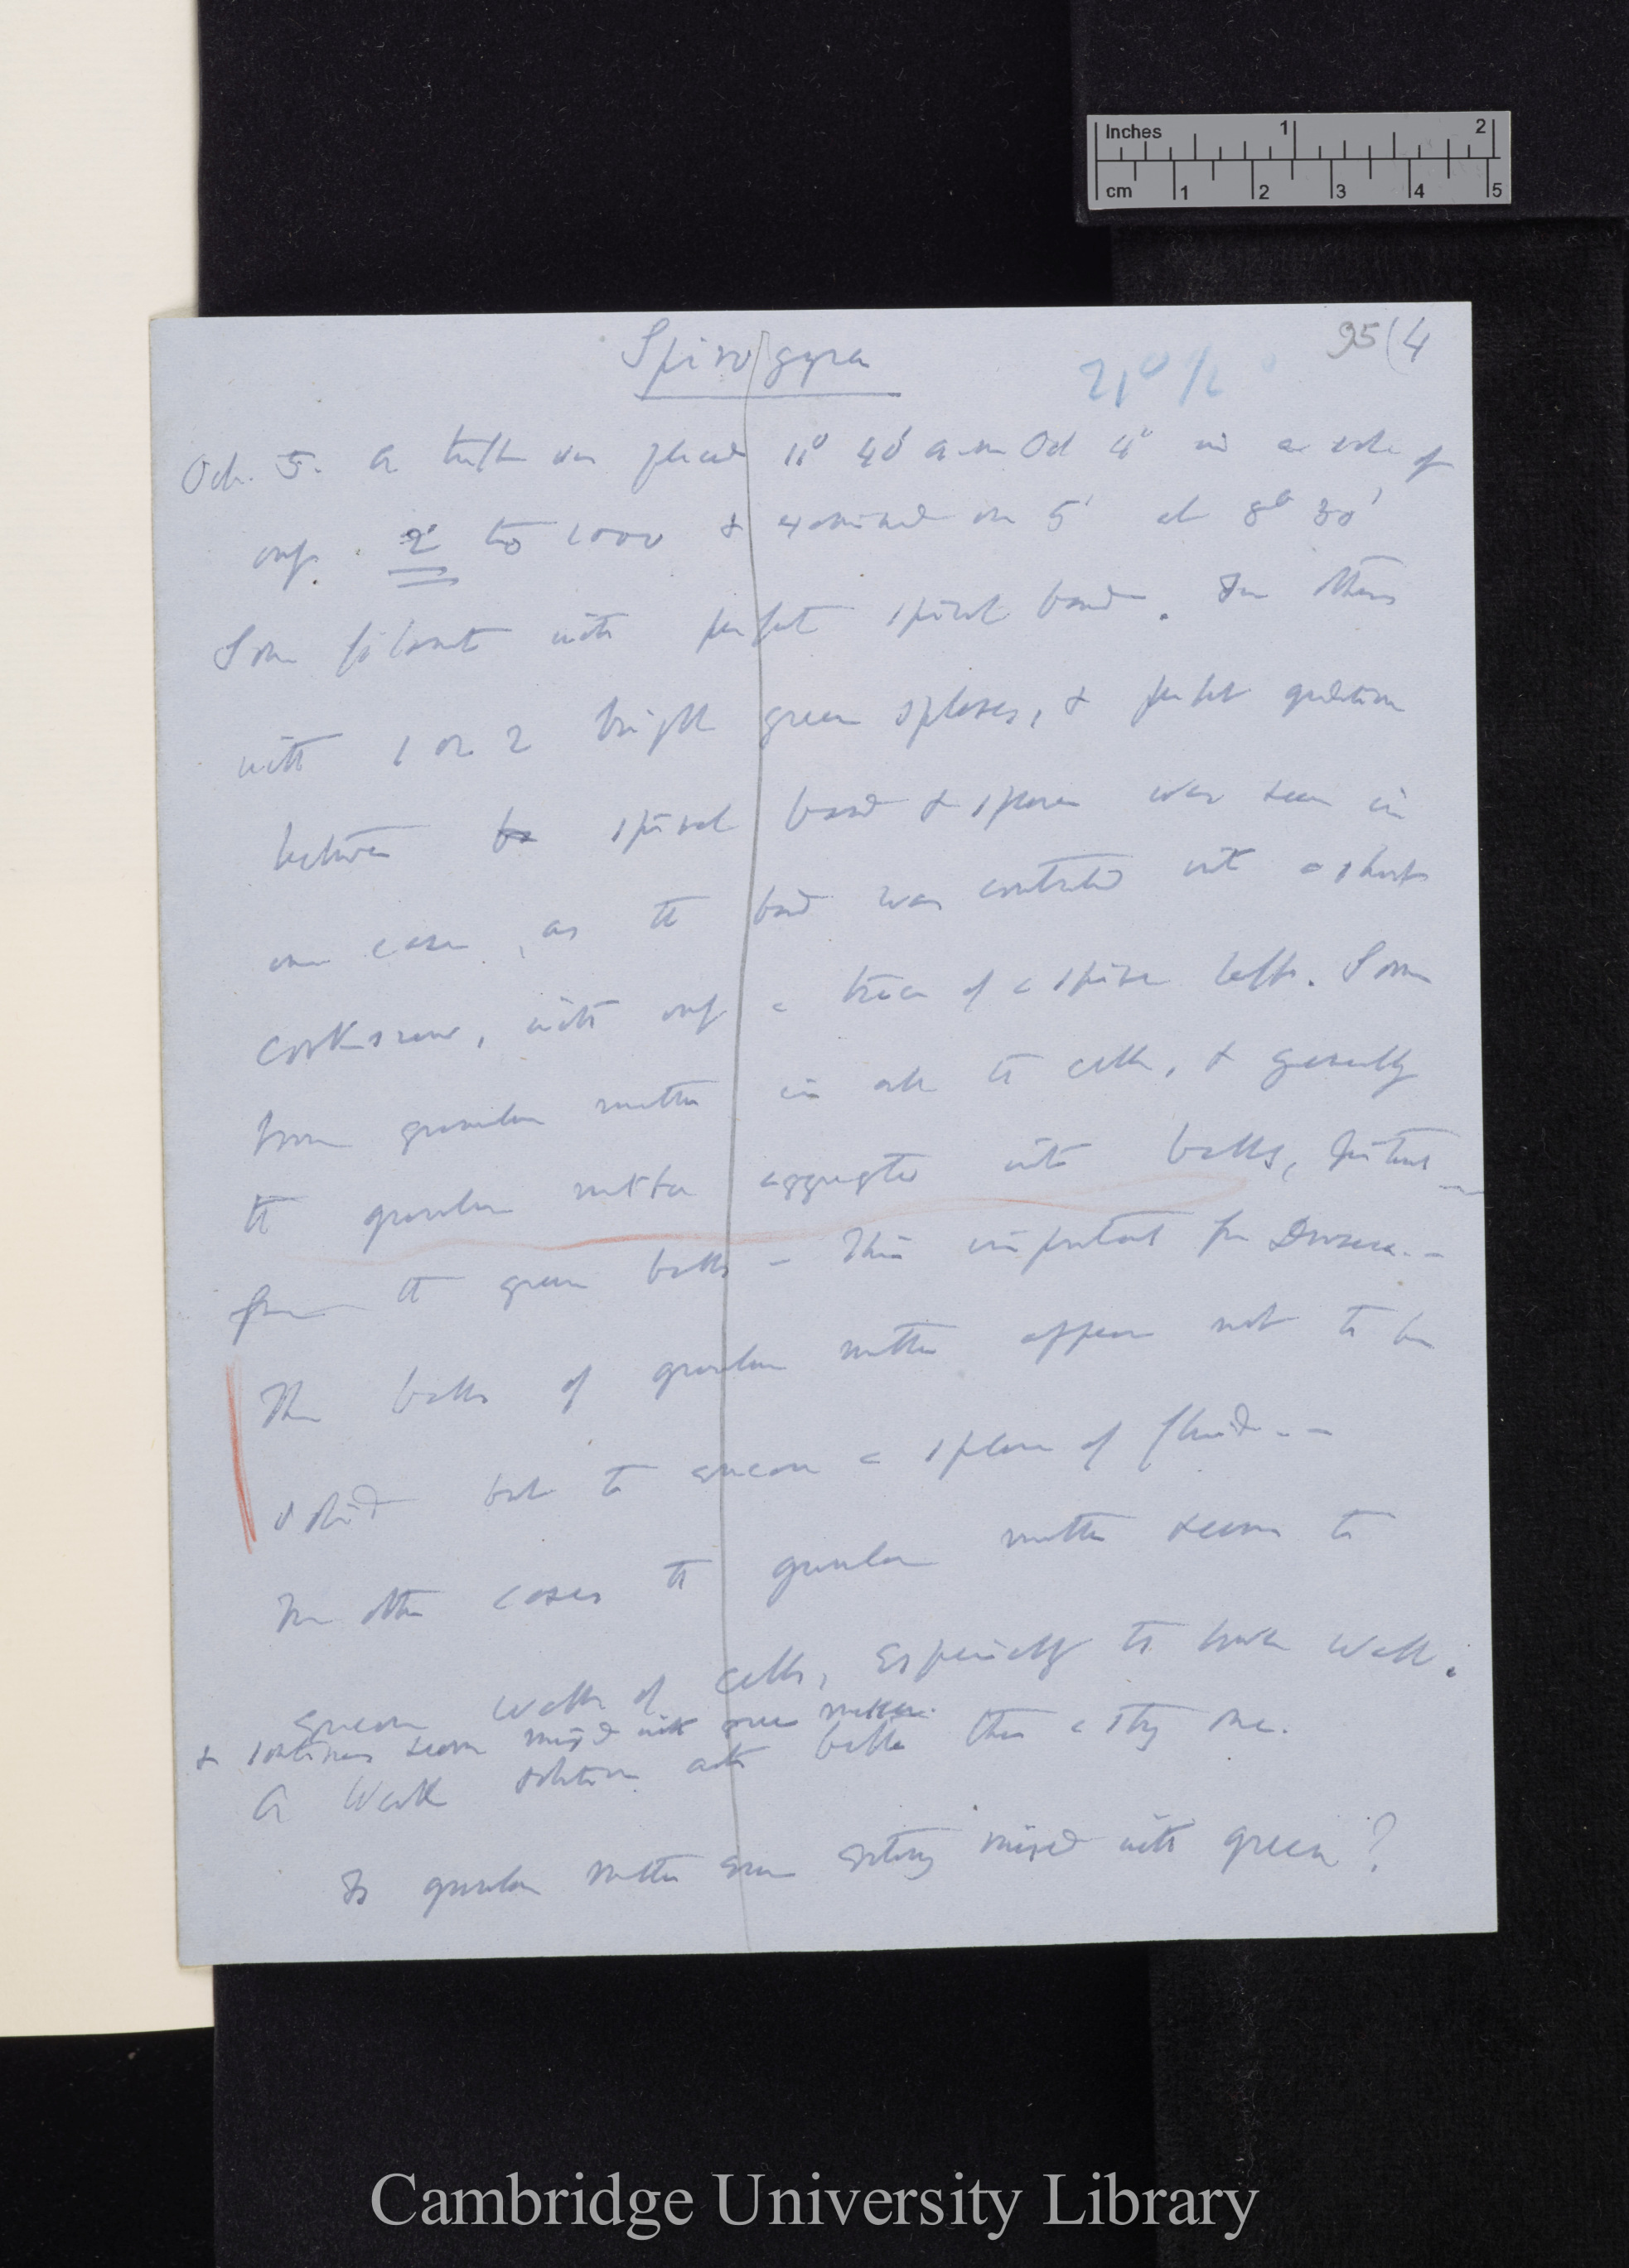 Inches 1 2
cm 1 2 3 4 5
95(4
Spirogyra
Oct. 5. A tuft was placed 11° 40' a.m Oct 4° in a sol. of
only 2 to 1000 & examined on 5' at 8° 30'
Some filaments with perfect spiral band. In others
with 1 or 2 bright green spheres, & perfect gradation
between spiral band & sphere was seen in
one case, as the band was contracted into a short
corkscrew, with only a trace of a spire left. Some
brown granular matter in all the cells, & generally
the granular matter aggregated into balls, distinct
from the green balls — This important for Drosera. —
The balls of granular matter appear not to be
solid but to encase a sphere of fluid. —
In other cases the granular matter seems to
encase walls of cells, especially the end walls.
& sometimes seem mixed with green matter.
A weak solution acts better than a strong one.
Is granular matter ever mixed with green?
Cambridge University Library